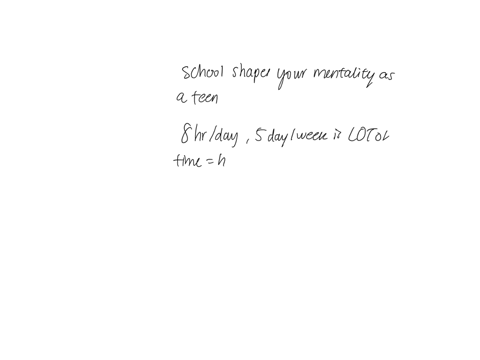 school shapes your mentality as
a teen
8 hr/day, 5 day/week is LOT of
time = h